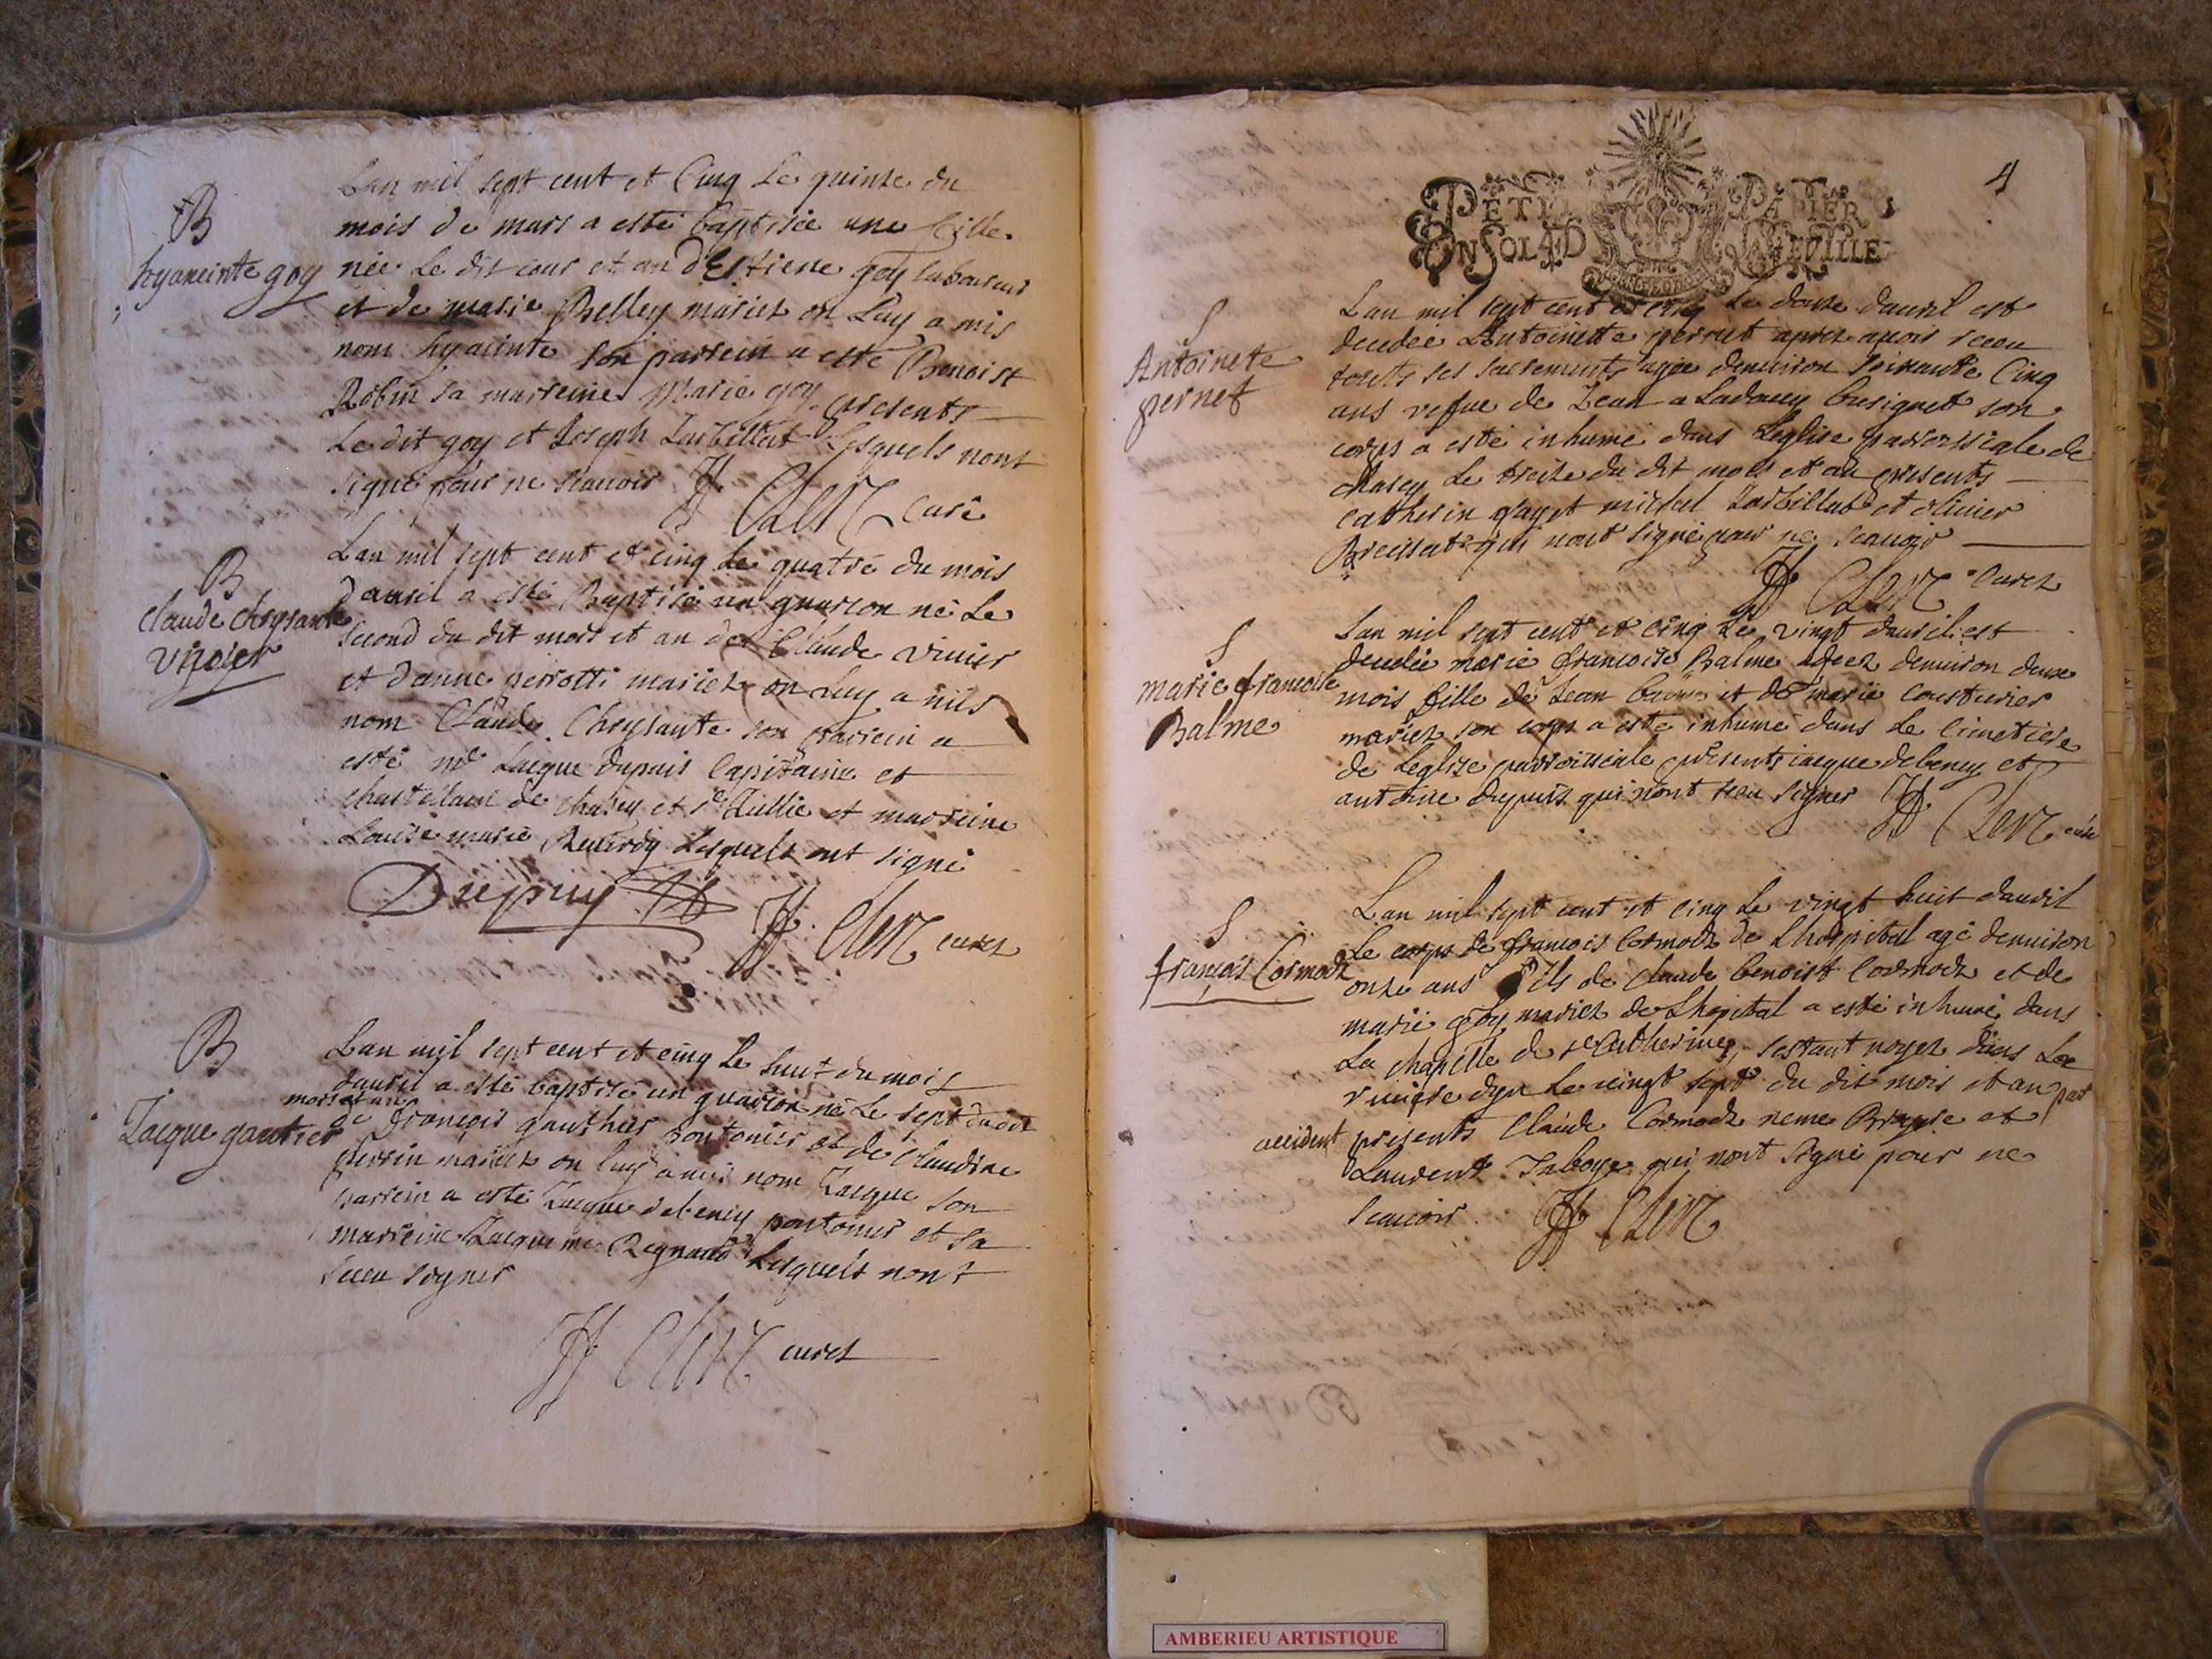 B
hyaneinte goy
Lan mil sept cent et Cinq Le quinze du
mois de mars a esté baptisée une fille
née Le dit iour et an d'Estiene goy laboureur
et de marie Belley mariez on Luy a mis
nom hyacinte son parrein a esté Benoist
Robin sa marreine Marie goy presents
Le dit goy et Joseph Jarbillat Lesquels nont
signé pour ne scauoir
Clerc Curé
B
Claude Chrysante
Lan mil sept cent et cinq Le quatre du mois
dauril a esté Baptisé un guarcon né Le
second du dit mois et an de Claude vinier
et danne perrotti mariez on Luy a mis
nom Claude Chrysante son parrein a
esté mr Jacque dupuis Capitaine et
chastelain de chasey et ste Jullie et marreine
Louise marie Lesquels ont signé
Dupuy
Clerc curez
B
Jacque gautier
Lan mil sept cent et cinq Le huit du mois
dauril a esté baptisé un guarcon né Le sept du dit
mois et an
de François gauthier pontonier et de Claudine
perrin mariez on luy a mis nom Jacque son
parrein a esté Jacque debeney pontonier et sa
marreine Jacqueme Regnaud Lesquels nont
sceu signer
Clerc curez
4
PETIT PAPIER
UN SOL 4 D LA FEUILLE
S
Antoinete
pernet
Lan mil sept cent et cinq Le douze dauril est
decedée Antoinette pernet aprez auoir receu
touts ses sacrements agée denuiron soixante Cinq
ans vefue de Jean a Ladouy son
corps a esté inhumé dans Leglise parroissiale de
chasey Le treize du dit mois et an presents
Catherin fayet michel Jarbillat et oliuier
qui nont signé pour ne scauoir
Clerc Curez
S
marie francoise
Balme
Lan mil sept cent et cinq Le vingt dauril est
decedée marie francoise Balme agéez denuiron deux
mois fille de Jean balme et de marie Cousturier
mariez son corps a esté inhumé dans Le Cimetiere
de Leglise parroissiale presents iacque debeney et
antoine dupuis qui nont sceu signer
Clerc curé
S
françois Cormodz
Lan mil sept cent et cinq Le vingt huit dauril
Le corps de francois Cormodz de Lhospital agé denuiron
onze ans fils de claude benoist Cormodz et de
marie goy mariez de Lhopital a esté inhumé dans
La chapelle de ste Catherine, sestant noyez dans La
riuiere dyn Le uingt sept du dit mois et an par
accident presents Claude Cormodz neme et
Laurent qui nont signé pour ne
scauoir
Clerc
AMBERIEU ARTISTIQUE